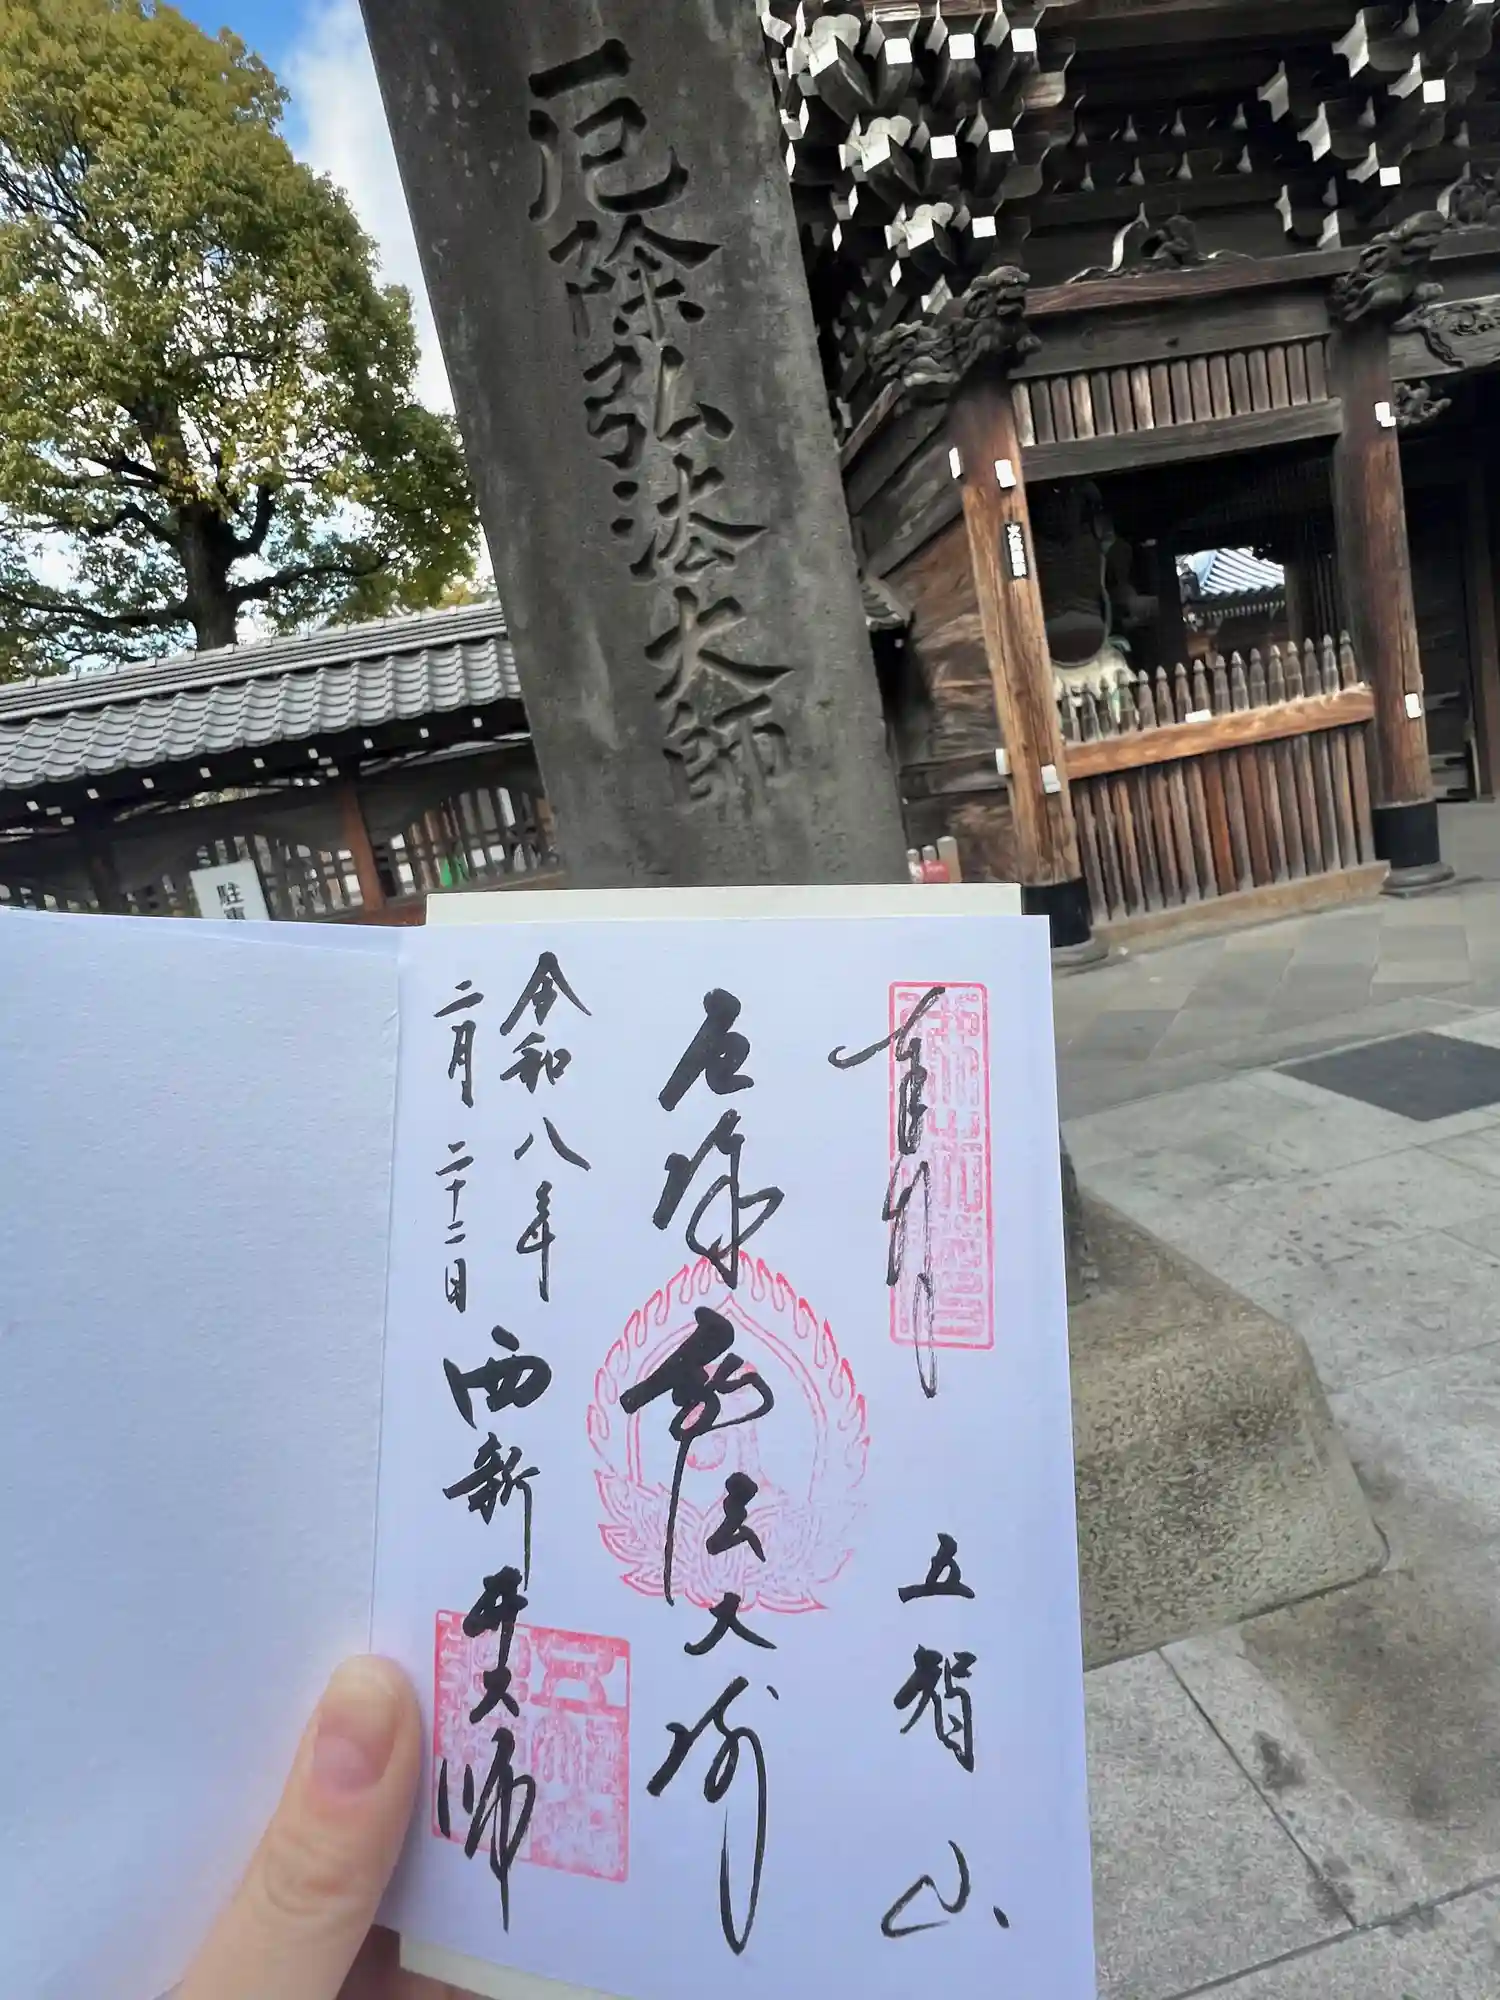 厄除弘法大師
駐車
奉拝
五智山
厄除弘法大師
令和八年
二月二十二日
西新井大師